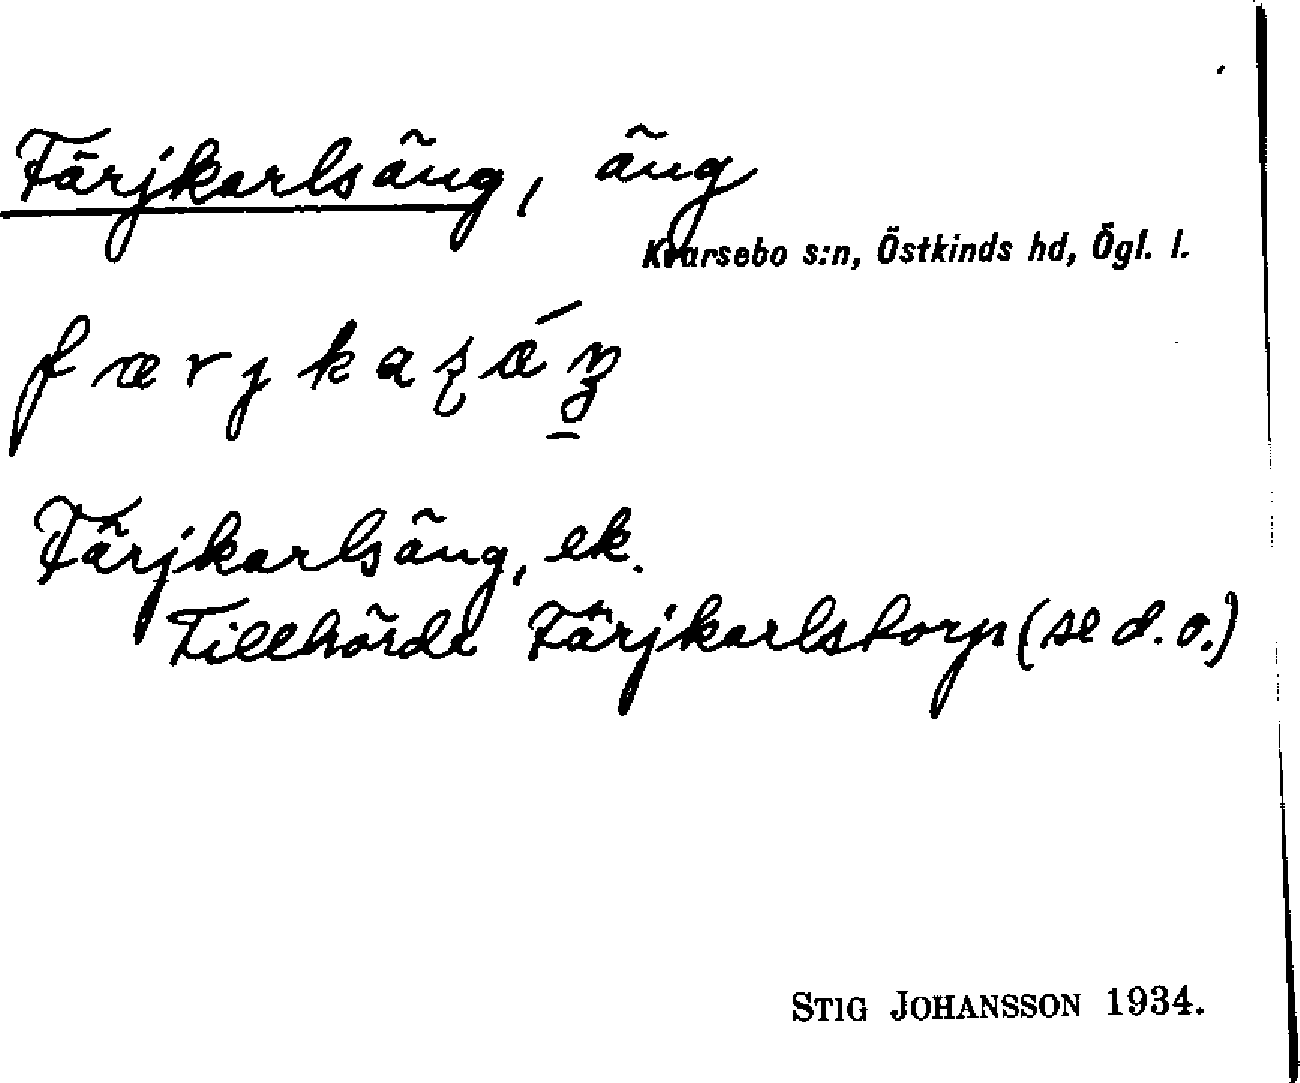 Färjkarlsäng, äng
Kvarsebo s:n, Östkinds hd, Ögl. l.
færjkaʂǽŋ
Färjkarlsäng, ek.
Tillhörde Färjkarlstorp (se d. o.)
STIG JOHANSSON 1934.